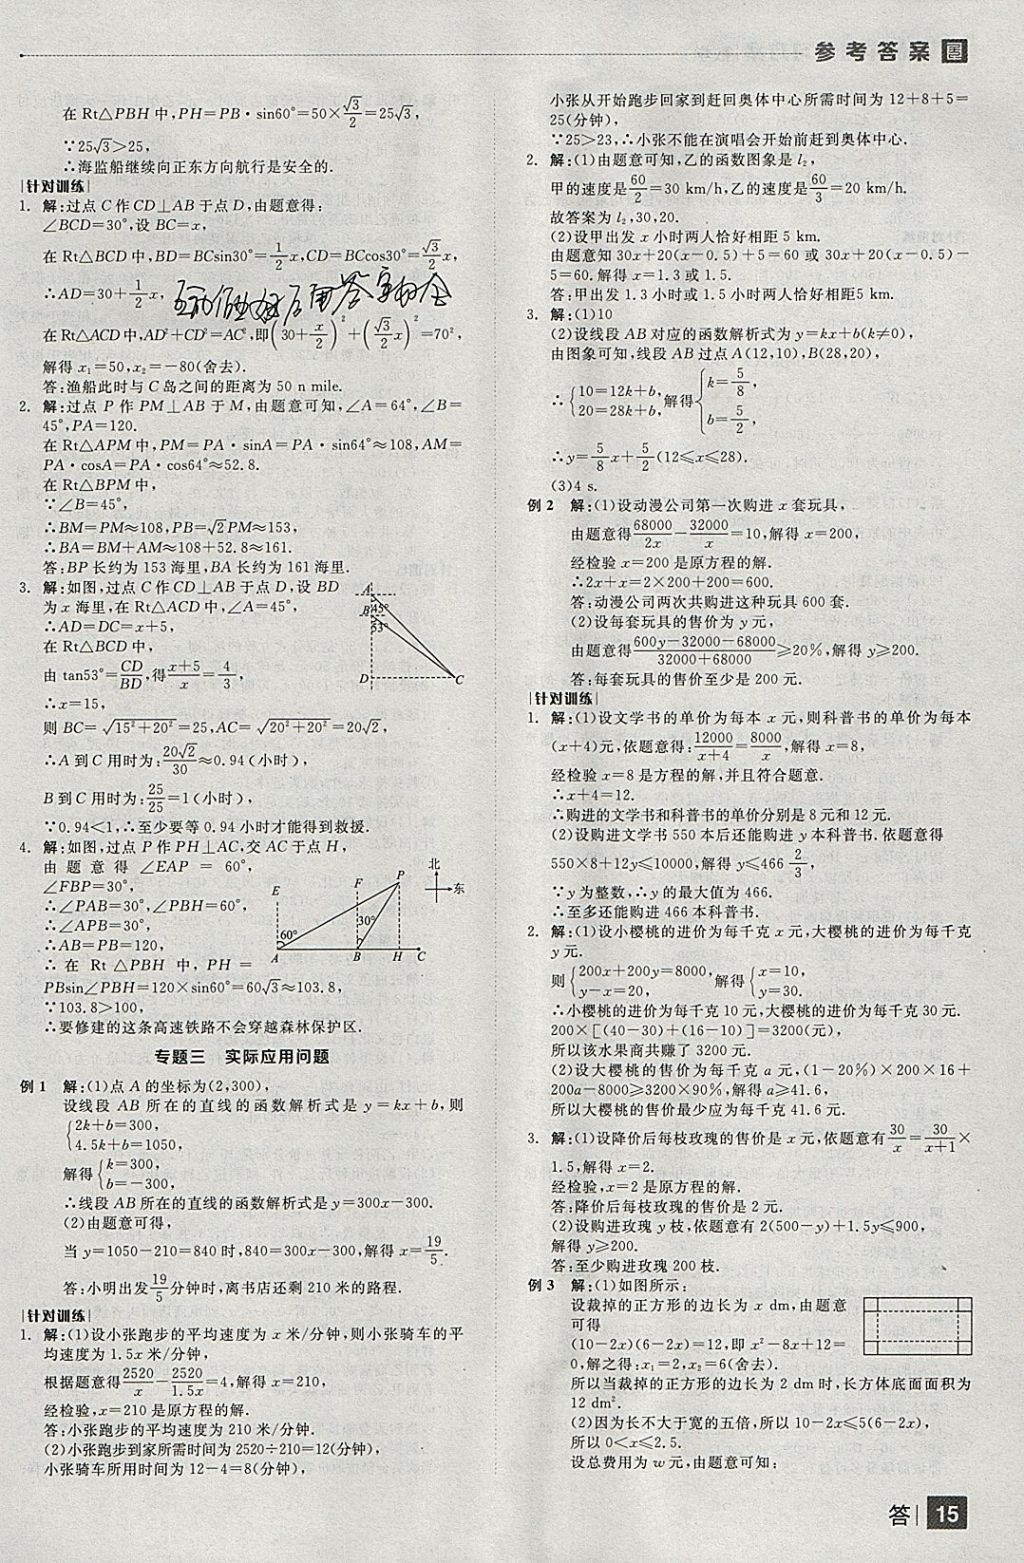 参考答案
在 Rt△PBH 中,PH=PB·sin60°=50×√3/2=25√3,
∵25√3>25,
∴海监船继续向正东方向航行是安全的.
针对训练
1. 解:过点 C 作 CD⊥AB 于点 D,由题意得:
∠BCD=30°,设 BC=x,
在 Rt△BCD 中,BD=BCsin30°=1/2x,CD=BCcos30°=√3/2x,
∴AD=30+1/2x,
在 Rt△ACD 中,AD²+CD²=AC²,即(30+x/2)²+(√3/2x)²=70²,
解得 x₁=50,x₂=-80(舍去).
答:渔船此时与 C 岛之间的距离为 50 n mile.
2. 解:过点 P 作 PM⊥AB 于 M,由题意可知,∠A=64°,∠B=
45°,PA=120.
在 Rt△APM 中,PM=PA·sinA=PA·sin64°≈108,AM=
PA·cosA=PA·cos64°≈52.8.
在 Rt△BPM 中,
∵∠B=45°,
∴BM=PM≈108,PB=√2PM≈153,
∴BA=BM+AM≈108+52.8≈161.
答:BP 长约为 153 海里,BA 长约为 161 海里.
3. 解:如图,过点 C 作 CD⊥AB 于点 D,设 BD
为 x 海里,在 Rt△ACD 中,∠A=45°,
∴AD=DC=x+5,
在 Rt△BCD 中,
由 tan53°=CD/BD,得(x+5)/x=4/3,
∴x=15,
则 BC=√(15²+20²)=25,AC=√(20²+20²)=20√2,
∴A 到 C 用时为:20√2/30≈0.94(小时),
B 到 C 用时为:25/25=1(小时),
∵0.94<1,∴至少要等 0.94 小时才能得到救援.
A
45°
B
53°
D
C
4. 解:如图,过点 P 作 PH⊥AC,交 AC 于点 H,
由题意得 ∠EAP = 60°,
∠FBP=30°,
∴∠PAB=30°,∠PBH=60°,
∴∠APB=30°,
∴AB=PB=120,
∴在 Rt△PBH 中,PH=
PBsin∠PBH=120×sin60°=60√3≈103.8,
∵103.8>100,
∴要修建的这条高速铁路不会穿越森林保护区.
北
东
E
F
P
60°
30°
A
B
H
C
专题三 实际应用问题
例 1 解:(1)点 A 的坐标为(2,300),
设线段 AB 所在的直线的函数解析式是 y=kx+b,则
{2k+b=300,
4.5k+b=1050,
解得{k=300,
b=-300,
∴线段 AB 所在的直线的函数解析式是 y=300x-300.
(2)由题意可得,
当 y=1050-210=840 时,840=300x-300,解得 x=19/5.
答:小明出发19/5分钟时,离书店还剩 210 米的路程.
针对训练
1. 解:(1)设小张跑步的平均速度为 x 米/分钟,则小张骑车的平
均速度为 1.5x 米/分钟,
根据题意得2520/x-2520/1.5x=4,解得 x=210,
经检验,x=210 是原方程的解.
答:小张跑步的平均速度为 210 米/分钟.
(2)小张跑步到家所需时间为 2520÷210=12(分钟),
小张骑车所用时间为 12-4=8(分钟),
小张从开始跑步回家到赶回奥体中心所需时间为 12+8+5=
25(分钟),
∵25>23,∴小张不能在演唱会开始前赶到奥体中心.
2. 解:(1)由题意可知,乙的函数图象是 l₂,
甲的速度是60/2=30 km/h,乙的速度是60/3=20 km/h.
故答案为 l₂,30,20.
(2)设甲出发 x 小时两人恰好相距 5 km.
由题意知 30x+20(x-0.5)+5=60 或 30x+20(x-0.5)-
5=60.解得 x=1.3 或 1.5.
答:甲出发 1.3 小时或 1.5 小时两人恰好相距 5 km.
3. 解:(1)10
(2)设线段 AB 对应的函数解析式为 y=kx+b(k≠0),
由图象可知,线段 AB 过点 A(12,10),B(28,20),
∴{10=12k+b,
20=28k+b,解得{k=5/8,
b=5/2,
∴y=5/8x+5/2(12≤x≤28).
(3)4 s.
例 2 解:(1)设动漫公司第一次购进 x 套玩具,
由题意得68000/2x-32000/x=10,解得 x=200,
经检验 x=200 是原方程的解.
∴2x+x=2×200+200=600.
答:动漫公司两次共购进这种玩具 600 套.
(2)设每套玩具的售价为 y 元,
由题意得(600y-32000-68000)/(32000+68000)≥20%,解得 y≥200.
答:每套玩具的售价至少是 200 元.
针对训练
1. 解:(1)设文学书的单价为每本 x 元,则科普书的单价为每本
(x+4)元,依题意得:12000/(x+4)=8000/x,解得 x=8,
经检验 x=8 是方程的解,并且符合题意.
∴x+4=12.
∴购进的文学书和科普书的单价分别是 8 元和 12 元.
(2)设购进文学书 550 本后还能购进 y 本科普书.依题意得
550×8+12y≤10000,解得 y≤466 2/3,
∵y 为整数,∴y 的最大值为 466.
∴至多还能购进 466 本科普书.
2. 解:(1)设小樱桃的进价为每千克 x 元,大樱桃的进价为每千克
y 元.
则{200x+200y=8000,
y-x=20,
解得{x=10,
y=30.
∴小樱桃的进价为每千克 10 元,大樱桃的进价为每千克 30 元.
200×[(40-30)+(16-10)]=3200(元),
所以该水果商共赚了 3200 元.
(2)设大樱桃的售价为每千克 a 元,(1-20%)×200×16+
200a-8000≥3200×90%,解得 a≥41.6,
所以大樱桃的售价最少应为每千克 41.6 元.
3. 解:(1)设降价后每枝玫瑰的售价是 x 元,依题意有30/x=30/(x+1)×
1.5,解得 x=2.
经检验,x=2 是原方程的解.
答:降价后每枝玫瑰的售价是 2 元.
(2)设购进玫瑰 y 枝,依题意有 2(500-y)+1.5y≤900,
解得 y≥200.
答:至少购进玫瑰 200 枝.
例 3 解:(1)如图所示:
设裁掉的正方形的边长为 x dm,由题意
可得
(10-2x)(6-2x)=12,即 x²-8x+12=
0,解之得:x₁=2,x₂=6(舍去).
所以当裁掉的正方形的边长为 2 dm 时,长方体底面面积为
12 dm².
(2)因为长不大于宽的五倍,所以 10-2x≤5(6-2x),
所以 0<x≤2.5.
设总费用为 w 元,由题意可知:
答 15